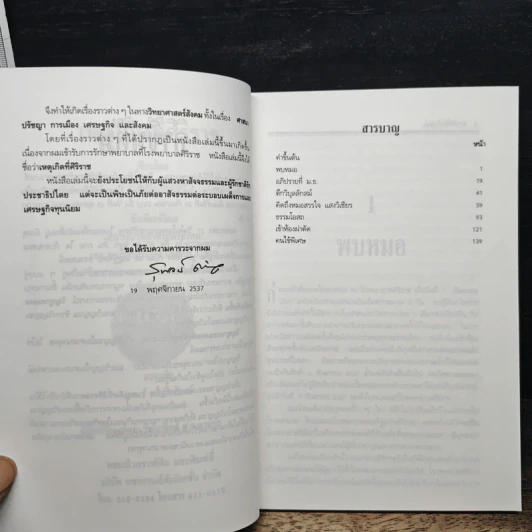 จึงทำให้เกิดเรื่องราวต่าง ๆ ในทางวิทยาศาสตร์สังคม ทั้งในเรื่อง ศาสนา
ปรัชญา การเมือง เศรษฐกิจ และสังคม
โดยที่เรื่องราวต่าง ๆ ที่ได้ปรากฏเป็นหนังสือเล่มนี้ขึ้นมาเกิดขึ้น
เนื่องจากผมเข้ารับการรักษาพยาบาลที่โรงพยาบาลศิริราช หนังสือเล่มนี้จึงให้
ชื่อว่าเหตุเกิดที่ศิริราช
หนังสือเล่มนี้จะยังประโยชน์ให้กับผู้แสวงหาสัจธรรมและผู้รักชาติรัก
ประชาธิปไตย แต่จะเป็นพิษเป็นภัยต่ออาสัจธรรมต่อระบอบเผด็จการและ
เศรษฐกิจทุนนิยม
ขอได้รับความคารวะจากผม
19 พฤศจิกายน 2537
สารบาญ
หน้า
คำขึ้นต้น
พบหมอ 1
อภิปรายที่ ม.ธ. 19
ตึกวิบุลลักสม์ 41
คิดถึงหมอสรรใจ แสงวิเชียร 59
ธรรมโอสถ 93
เข้าห้องผ่าตัด 121
คนไข้พิเศษ 139